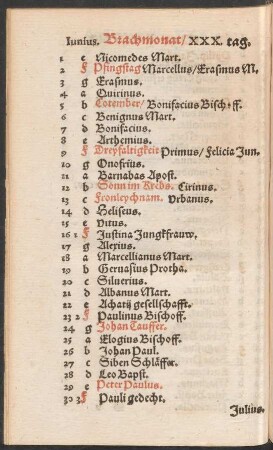 Iunius. Brachmonat/ XXX. tag.
1 e Nicomedes Mart.
2 f Pfingstag Marcellus/ Erasmus M.
3 g Erasmus.
4 a Quirinus.
5 b Cotember/ Bonifacius Bischoff.
6 c Benignus Mart.
7 d Bonifacius.
8 e Arthemius.
9 f Dreyfaltigkeit Primus/ Felicia Jun.
10 g Onofrius.
11 a Barnabas Apost.
12 b Sonn im Krebs. Cirinus.
13 c Fronleychnam. Vrbanus.
14 d Heliseus.
15 e Vitus.
16 1 f Justina Jungkfrauw.
17 g Alexius.
18 a Marcellianus Mart.
19 b Geruasius Protha.
20 c Siluerius.
21 d Albanus Mart.
22 e Achatij gesellschafft.
23 2 f Paulinus Bischoff.
24 g Johan Tauffer.
25 a Elogius Bischoff.
26 b Johan Paul.
27 c Siben Schläffer.
28 d Leo Bapst.
29 e Peter Paulus.
30 3 f Pauli gedecht.
Julius.